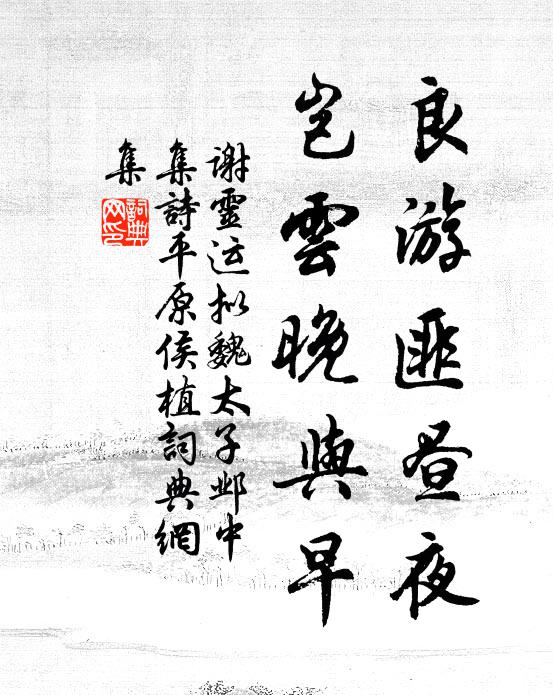 良游匪昼夜
岂雲晚與早
谢靈运拟魏太子邺中
集詩平原侯植詞典網
集
詞典
网印